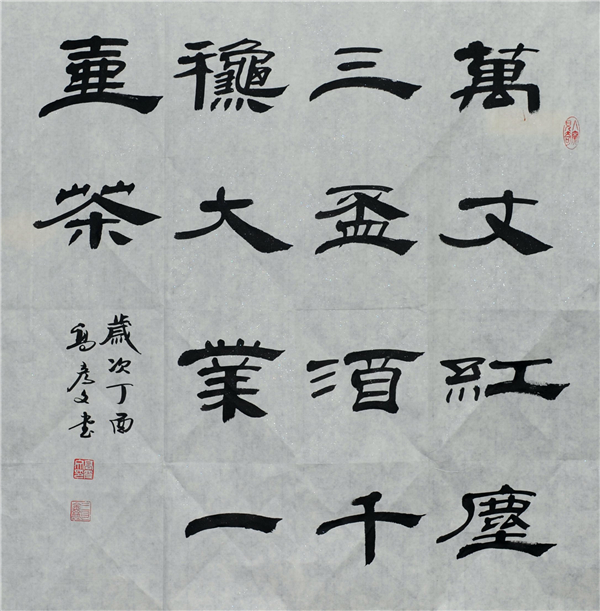 萬丈紅塵
三盃酒千
龝大業一
壺茶
歲次丁酉
彥文書